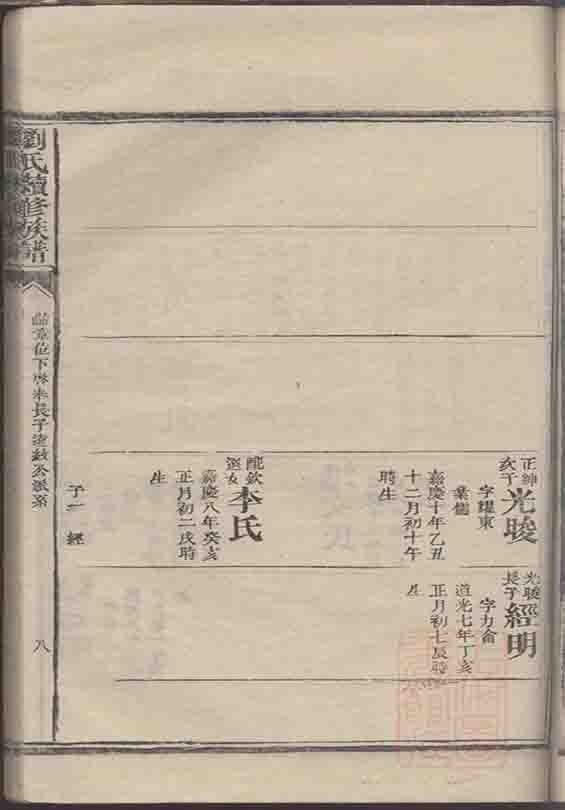 正紳次子
光駿
字耀東
業儒
嘉慶十年乙丑
十二月初十午
時生
配欽選女
李氏
嘉慶八年癸亥
正月初二戌時
生
子一 經
光駿長子
經明
字力畬
道光七年丁亥
正月初七辰時
生
劉氏續修族譜
位下 長子 公派系
八